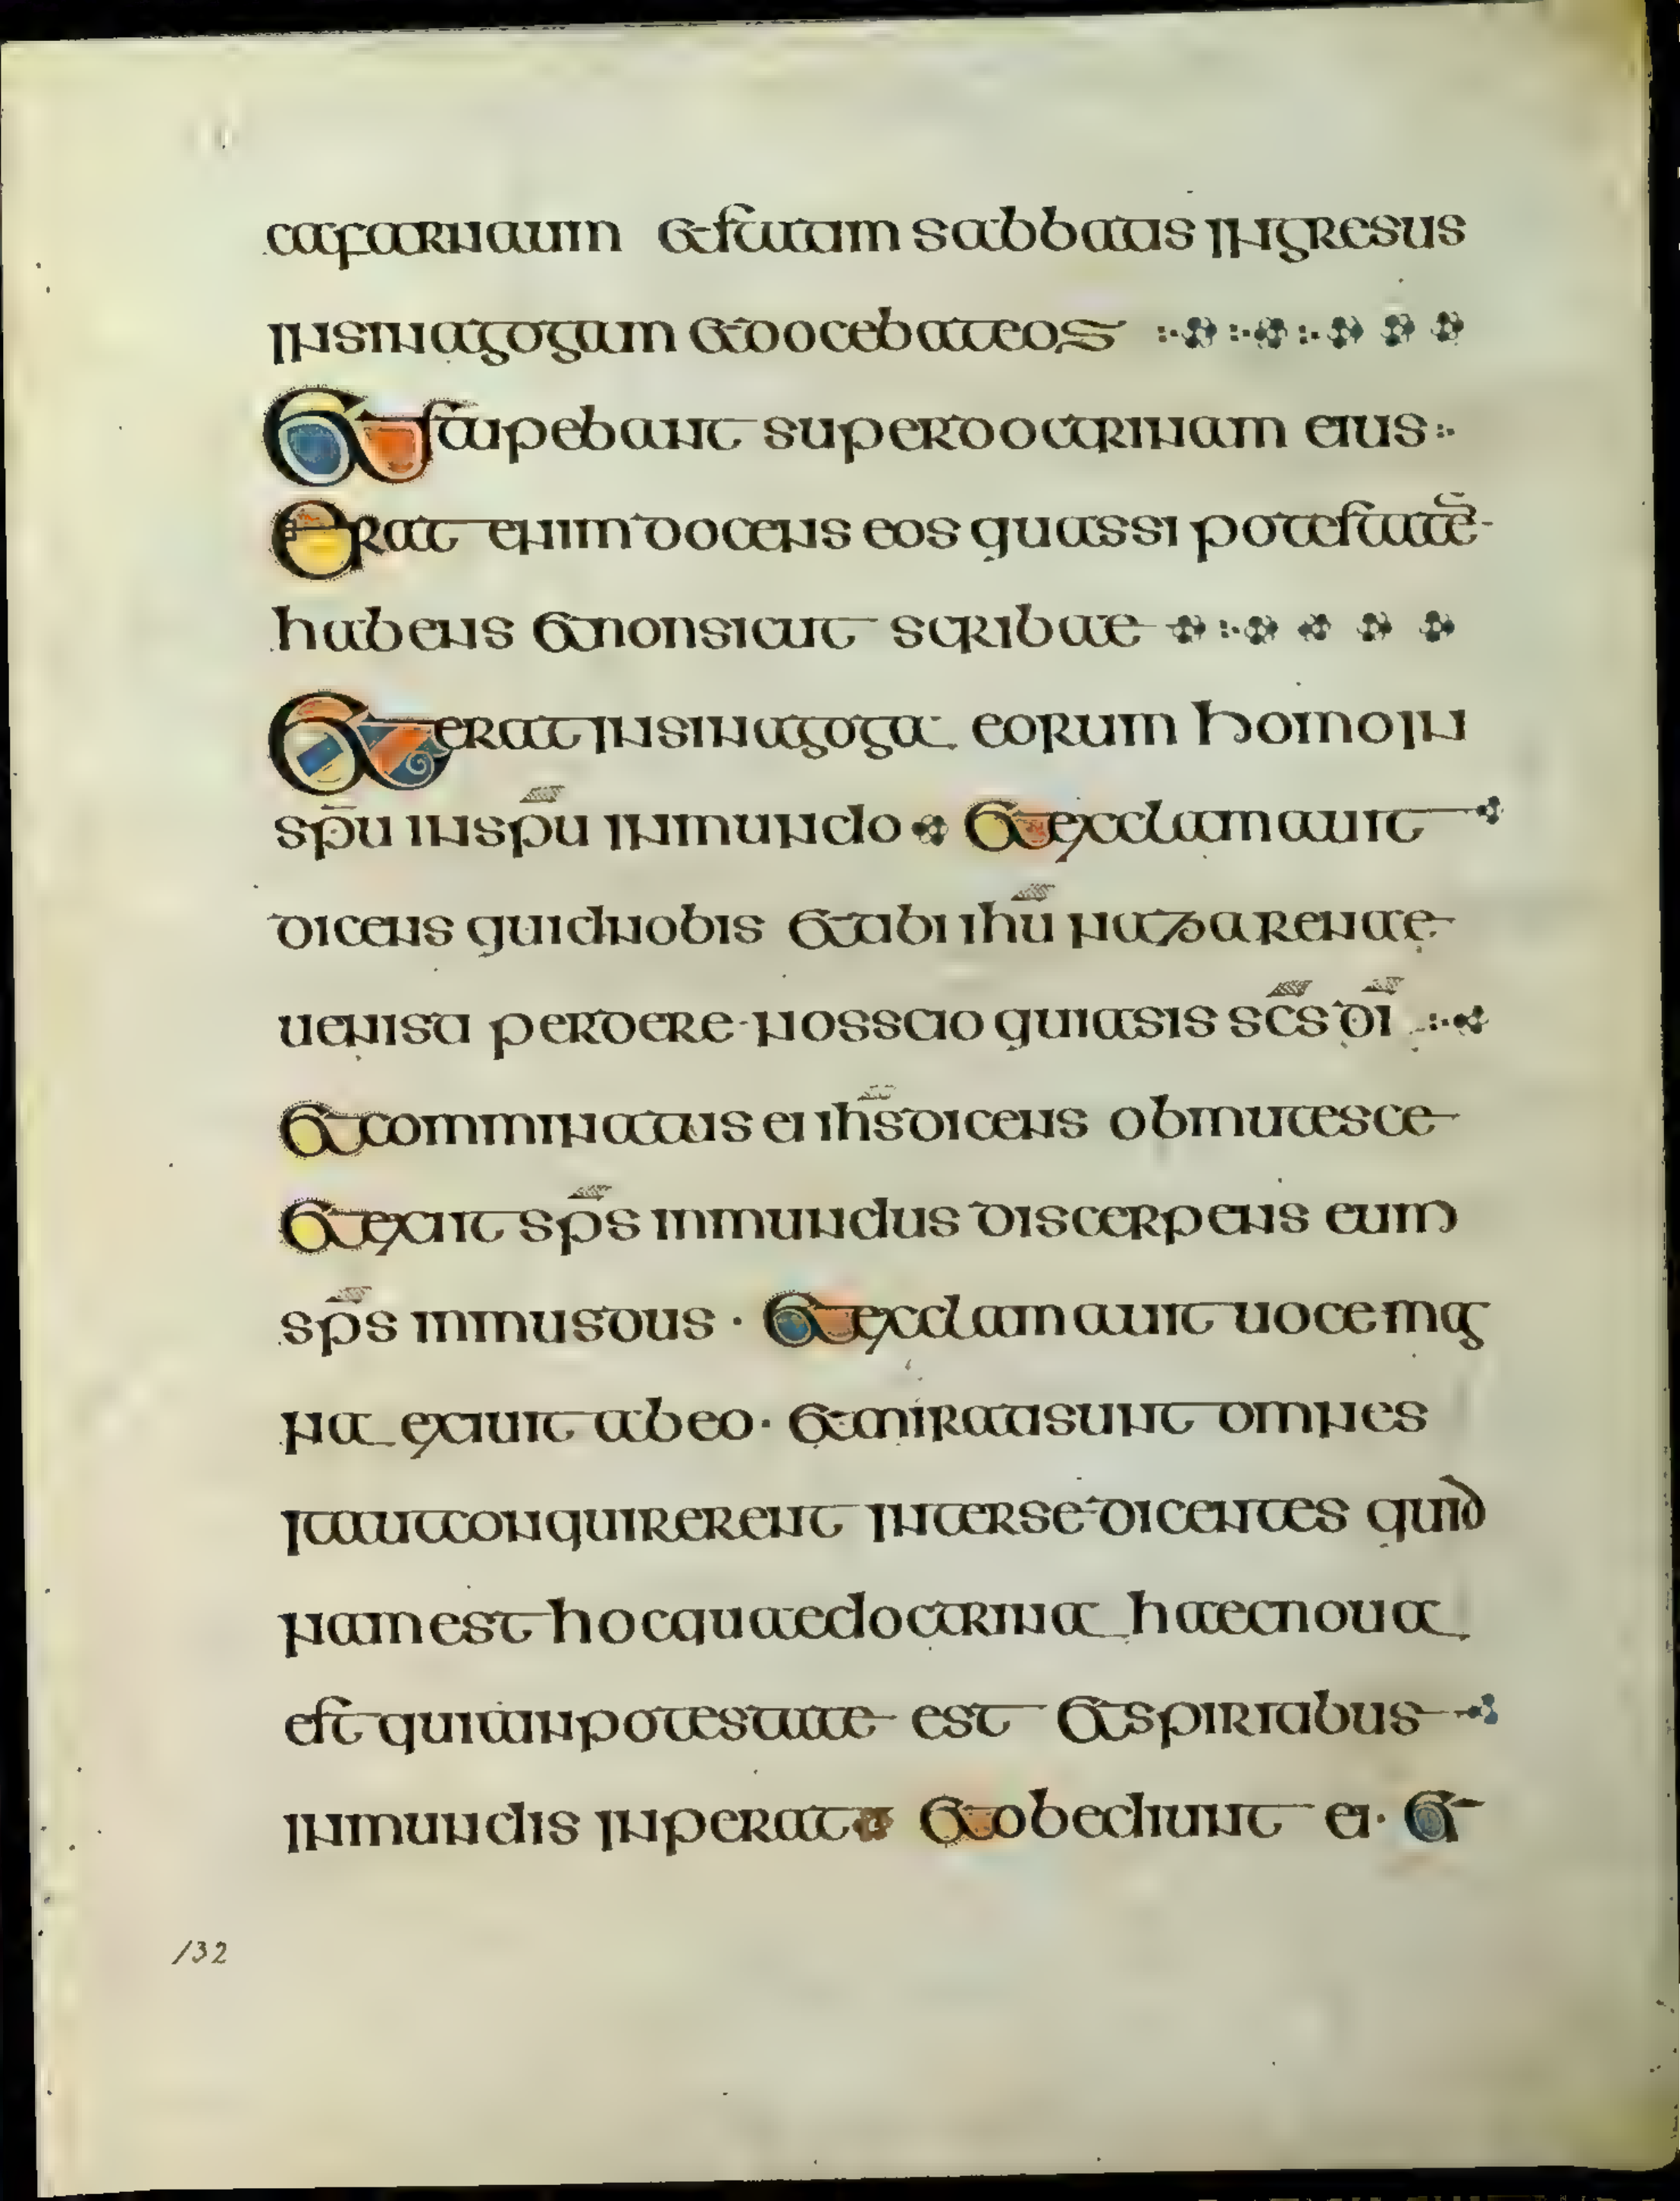 cafarnaum et statim sabbatis ingresus
in sinagogam et docebat eos
Et stupebant super doctrinam eius
Erat enim docens eos quassi potestatē
habens et non sicut scribae
Et erat in sinagoga eorum homo in
sp̄u in sp̄u inmundo Et exclamauit
dicens quid nobis et tibi ihū nazarenae
uenisti perdere nos scio quia sis sc̄s dī
Et comminatus ei ihs̄ dicens obmutesce
Et exiit sp̄s inmundus discerpens eum
sp̄s inmusdus · Et exclamauit uoce mag
na exiuit ab eo · et mirati sunt omnes
ita ut conquirerent inter se dicentes quid
nam est hoc quae doctrina haec noua
est quia in potestate est et spiritabus
inmundis inperat Et obediunt ei · Et
132